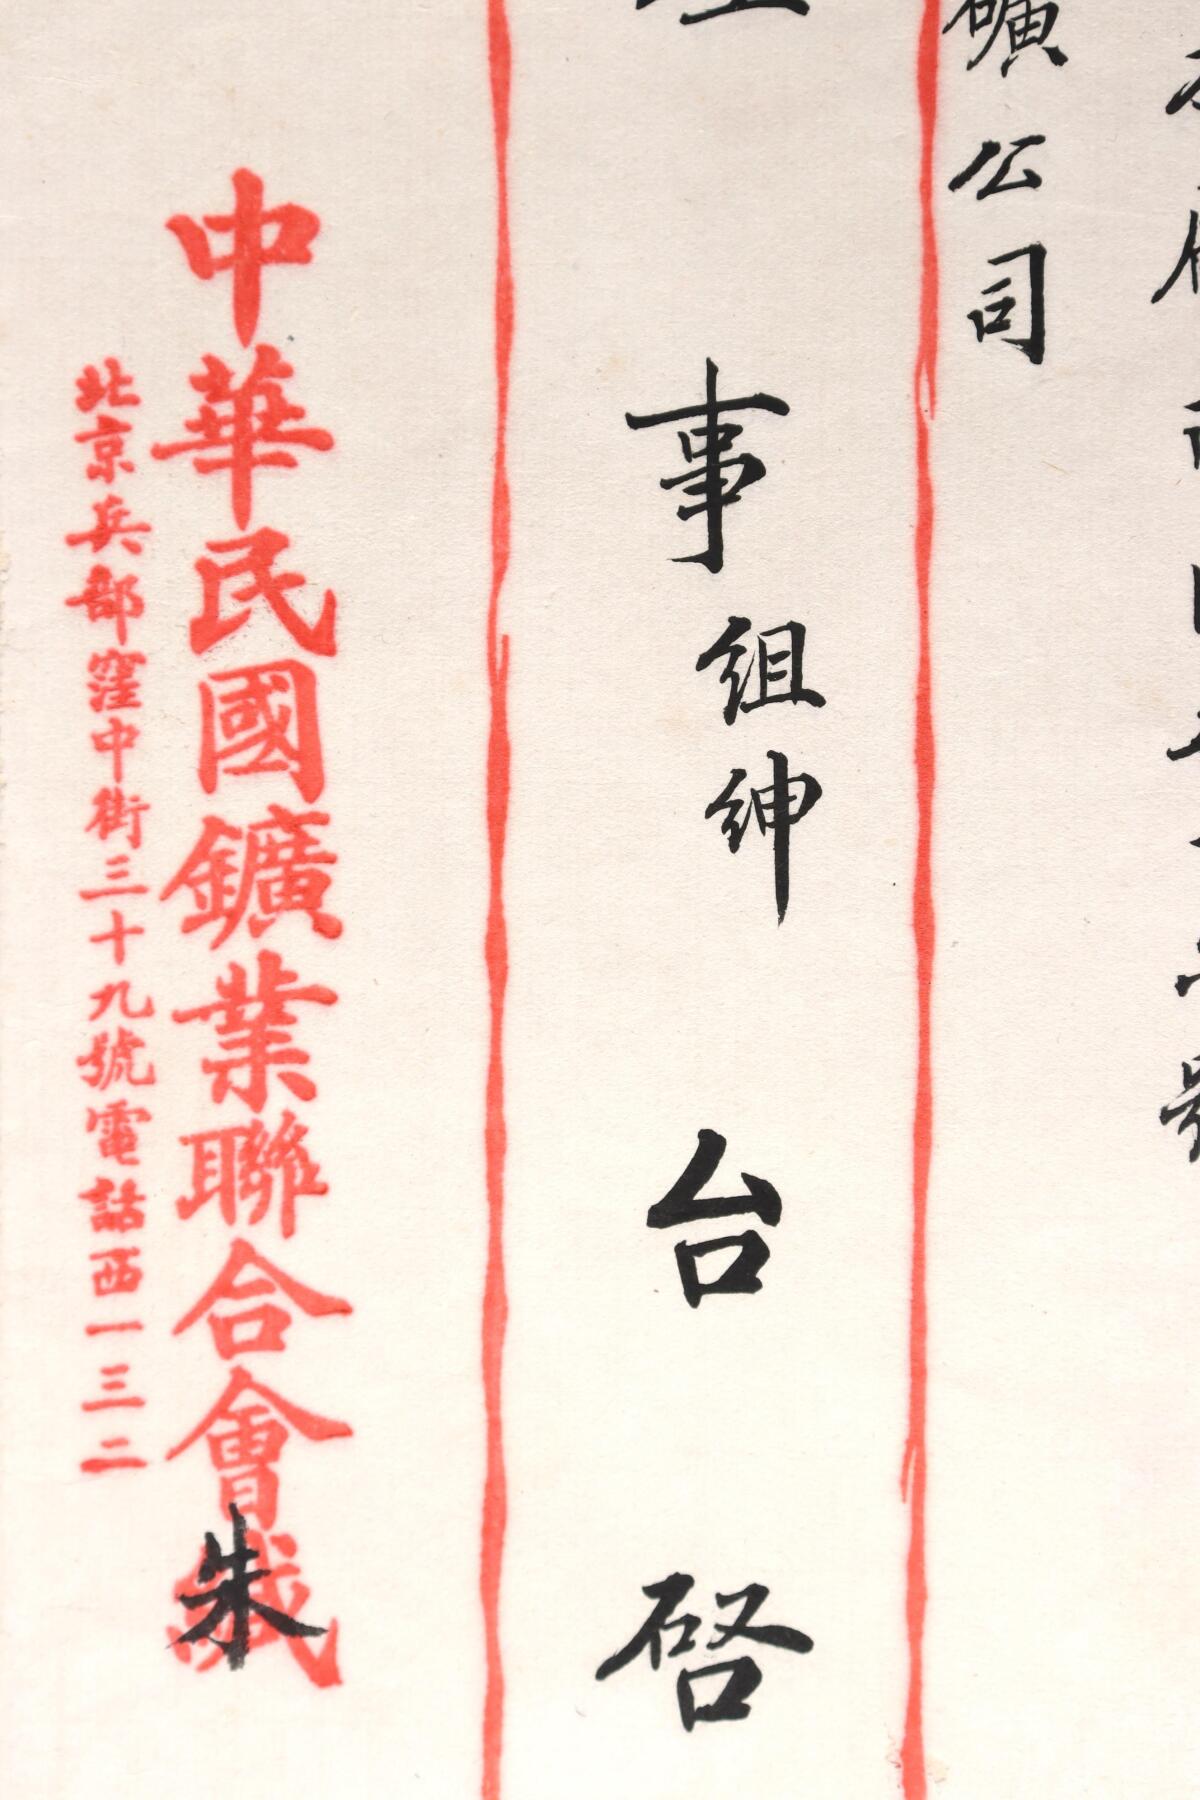 礦公司
事組紳台啓
中華民國鑛業聯合會緘朱
北京兵部窪中街三十九號電話西一三二